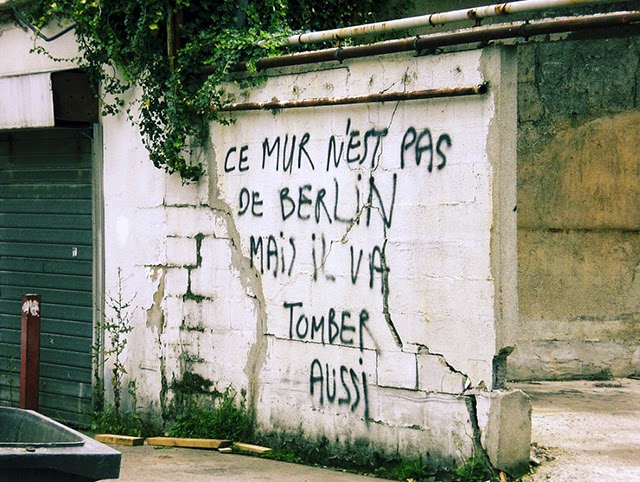 CE MUR N'EST PAS
DE BERLIN
MAIS IL VA
TOMBER
AUSSI